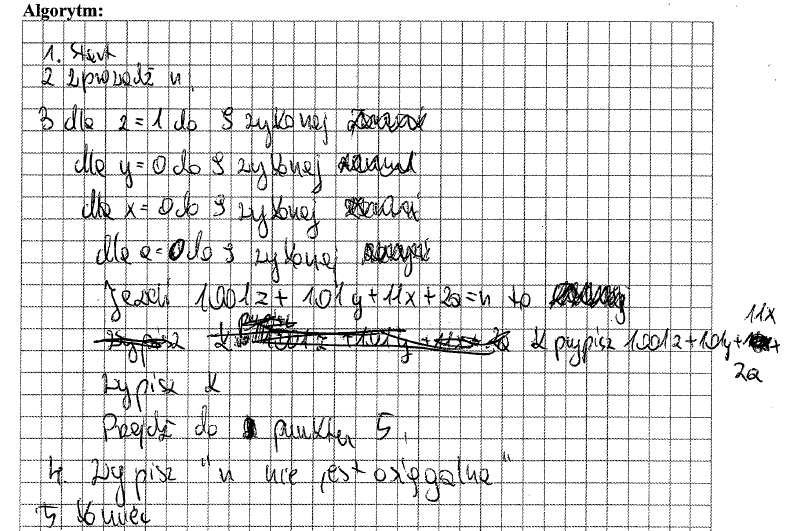 Algorytm:
1. Start
2 Wprowadź n.
3 dla z = 1 do 9 wykonaj
dla y = 0 do 9 wykonaj
dla x = 0 do 9 wykonaj
dla a = 0 do 9 wykonaj
Jeżeli 1001z + 101y + 11x + 2a = n to
K przypisz 1001z + 101y + 11x +
2a
Wypisz K
Przejdź do punktu 5.
4. Wypisz "n nie jest osiągalna"
5. Koniec